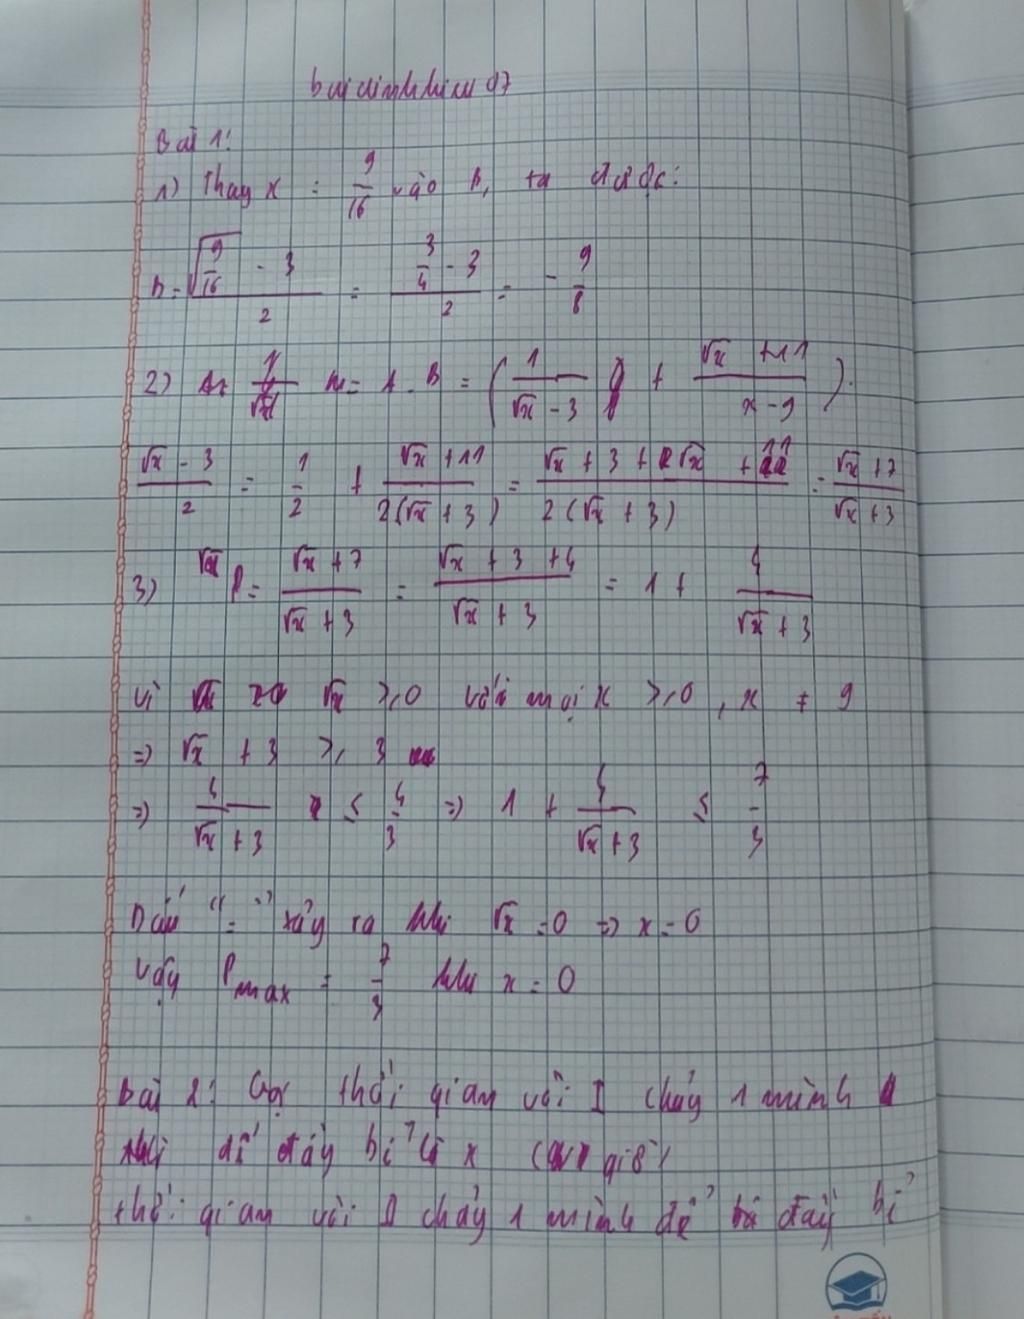 buidinhhieu 07
Bài 1:
1) Thay x = 9/16 vào B, ta được:
B = (√(9/16) - 3)/2 = (3/4 - 3)/2 = - 9/8
2) M = A . B = (1/(√x - 3) + (√x + 11)/(x - 9)).
(√x - 3)/2 = 1/2 + (√x + 11)/(2(√x + 3)) = (√x + 3 + √x + 11)/(2(√x + 3)) = (√x + 7)/(√x + 3)
3) P = (√x + 7)/(√x + 3) = (√x + 3 + 4)/(√x + 3) = 1 + 4/(√x + 3)
Vì √x ⩾ 0 với mọi x ⩾ 0, x ≠ 9
=> √x + 3 ⩾ 3
=> 4/(√x + 3) ≤ 4/3 => 1 + 4/(√x + 3) ≤ 7/3
Dấu "=" xảy ra khi √x = 0 => x = 0
Vậy Pmax = 7/3 khi x = 0
Bài 2: Gọi thời gian vòi I chảy 1 mình
để đầy bể là x (giờ)
thời gian vòi II chảy 1 mình để đầy bể